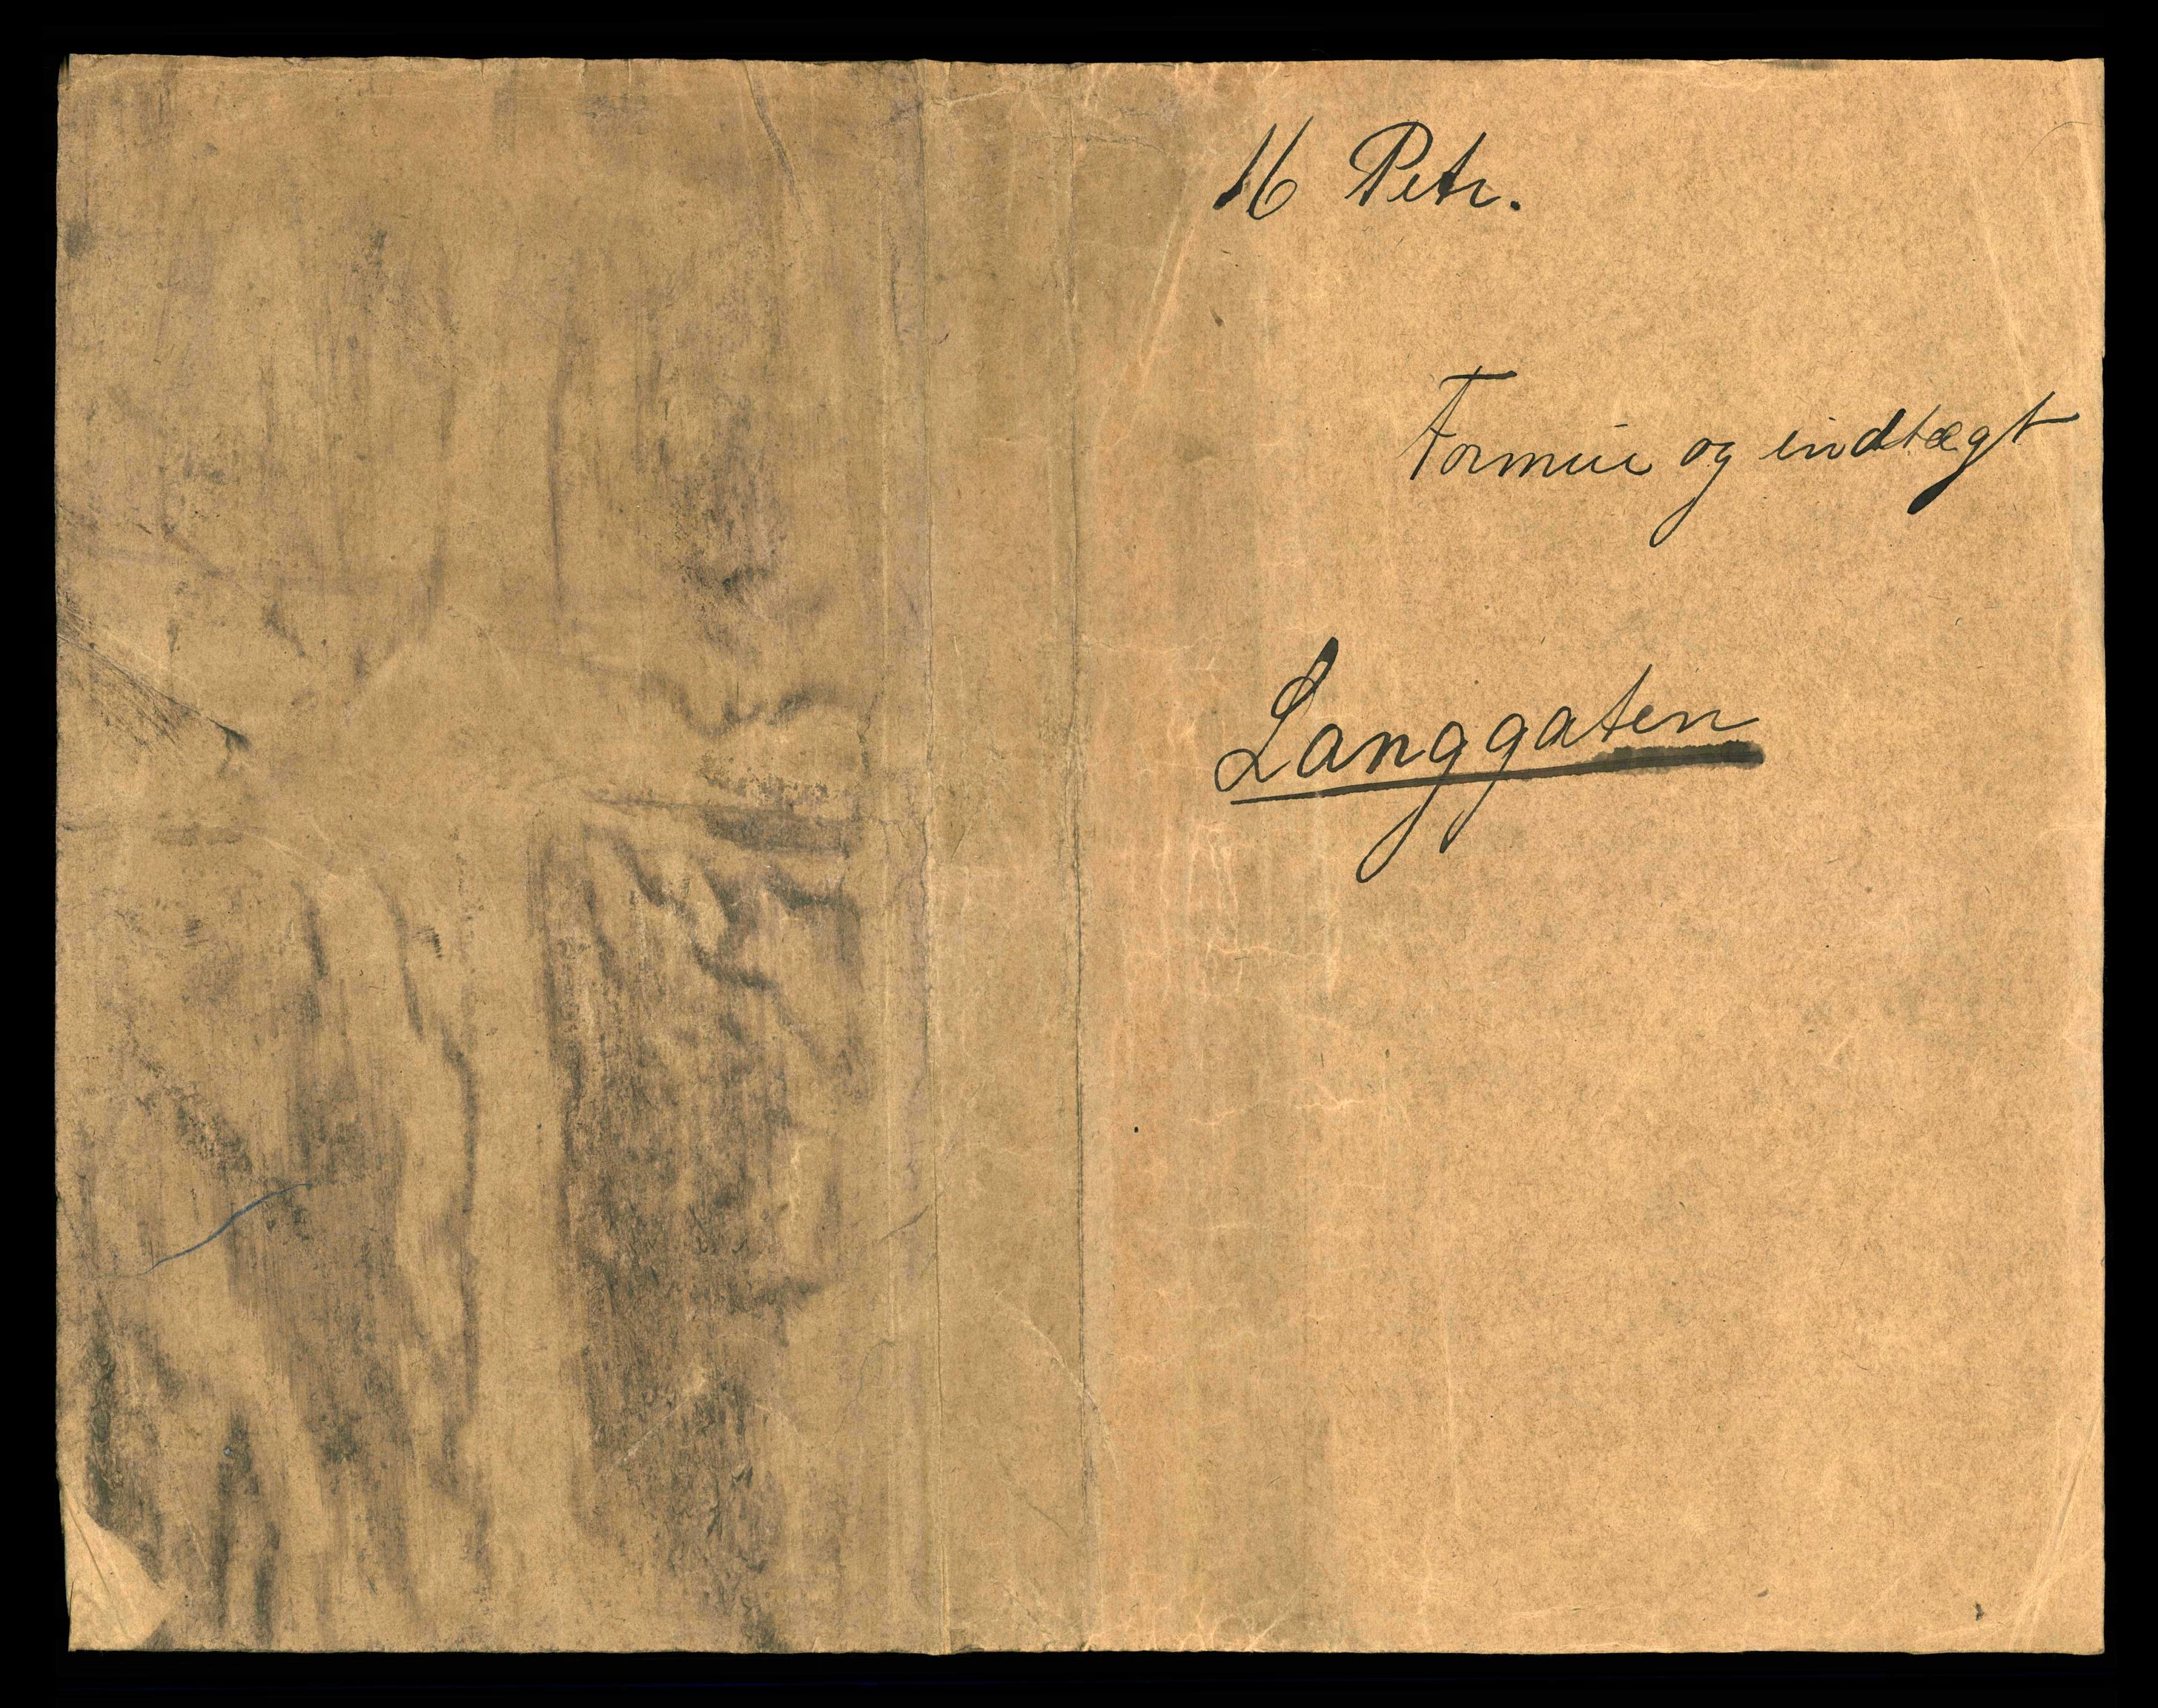 16 Petr.
Formue og indtægt
Langgaten